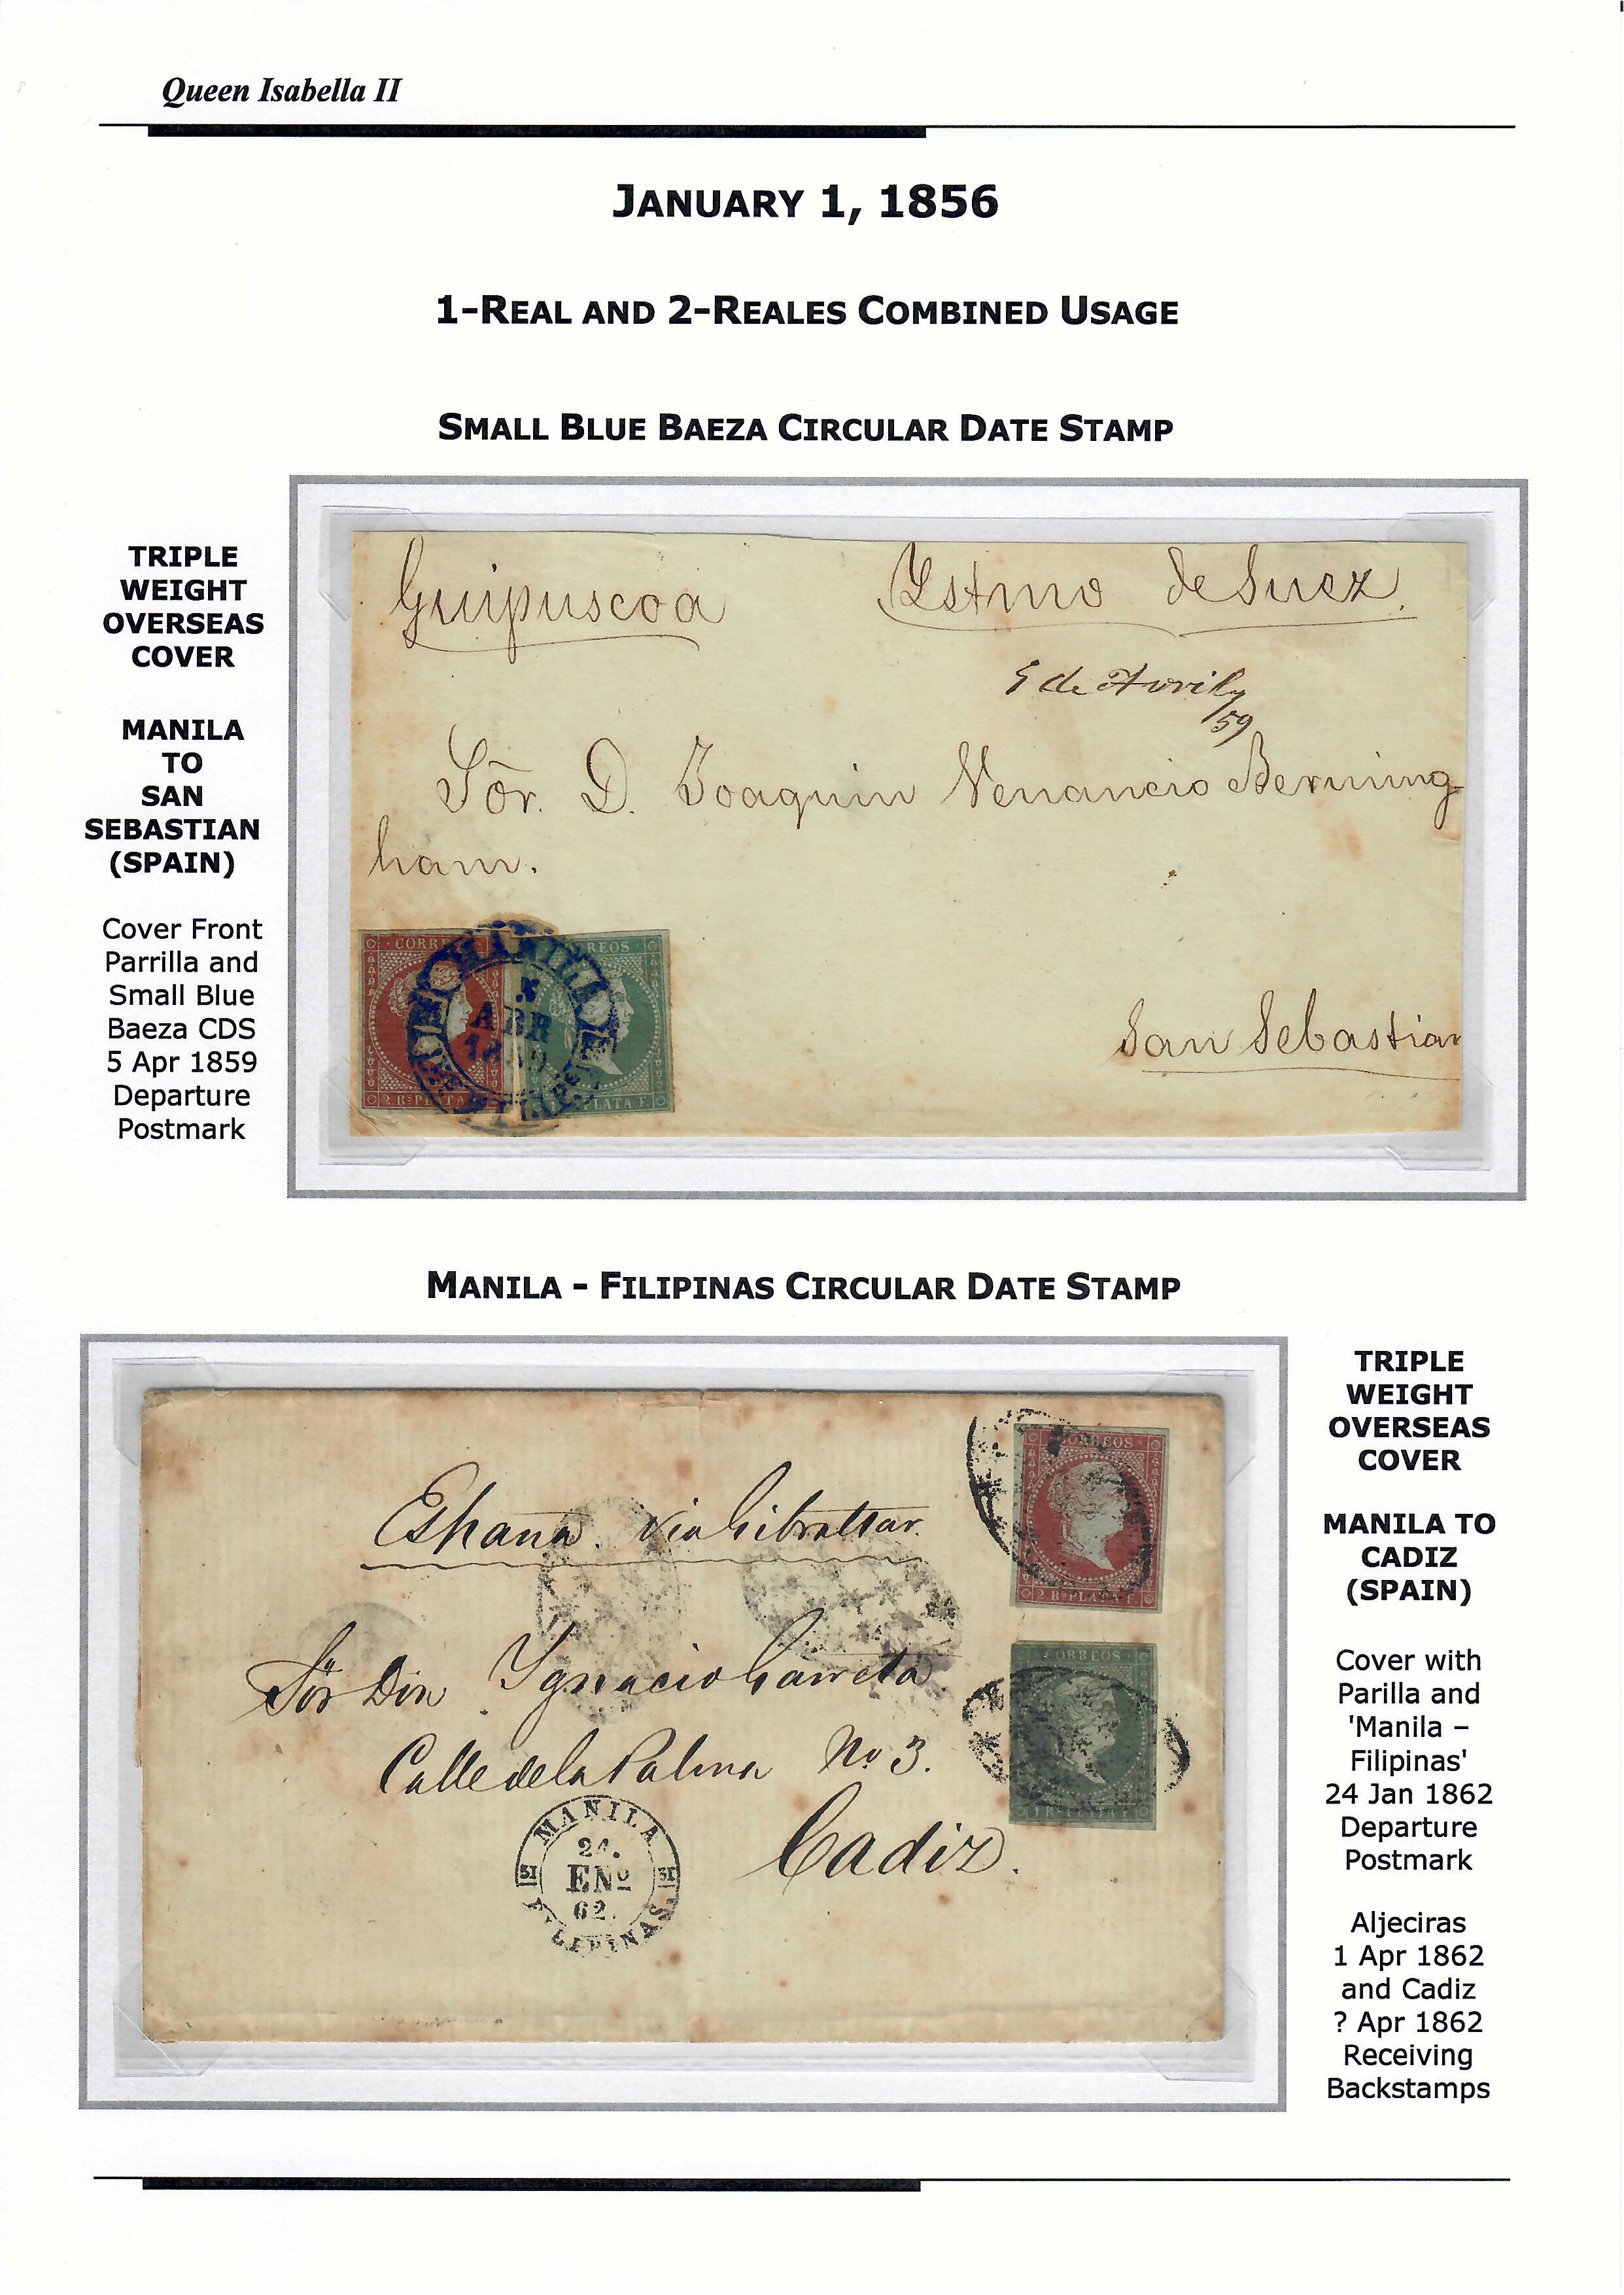 Queen Isabella II
JANUARY 1, 1856
1-REAL AND 2-REALES COMBINED USAGE
SMALL BLUE BAEZA CIRCULAR DATE STAMP
TRIPLE
WEIGHT
OVERSEAS
COVER
MANILA
TO
SAN
SEBASTIAN
(SPAIN)
Cover Front
Parrilla and
Small Blue
Baeza CDS
5 Apr 1859
Departure
Postmark
Guipuscoa Ystmo de Suez.
5 de Avril
/59
Sõr. D. Joaquin Venancio Berming
ham.
CORRE REOS
MANILA
5
ABR
2 Rs PLATA PLATA F.
San Sebastian
MANILA - FILIPINAS CIRCULAR DATE STAMP
España. via Gibraltar.
CORREOS
2 Rs PLATA F.
Sõr Don Ygnacio
CORREOS
Calle de la Palma No 3.
Cadiz.
MANILA
24.
ENº
62.
FILIPINAS
TRIPLE
WEIGHT
OVERSEAS
COVER
MANILA TO
CADIZ
(SPAIN)
Cover with
Parilla and
'Manila –
Filipinas'
24 Jan 1862
Departure
Postmark
Aljeciras
1 Apr 1862
and Cadiz
? Apr 1862
Receiving
Backstamps